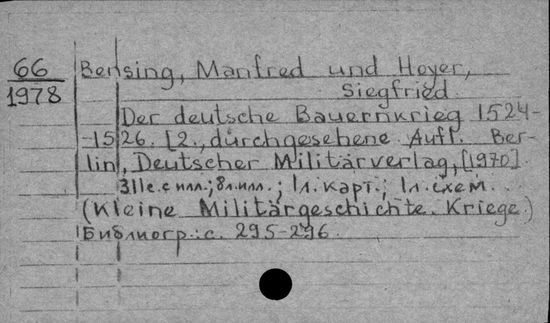 66 Bensing, Manfred und Hoyer,
1978 Siegfried.
Der deutsche Bauernkrieg 1524-
-1526. [2., durchgesehene Aufl. Ber-
lin, Deutscher Militärverlag, [1970].
311с. с илл.; 8л. илл.; 1л. карт.; 1л. схем.
(Kleine Militärgeschichte. Kriege.)
Библиогр.: с. 295-296.